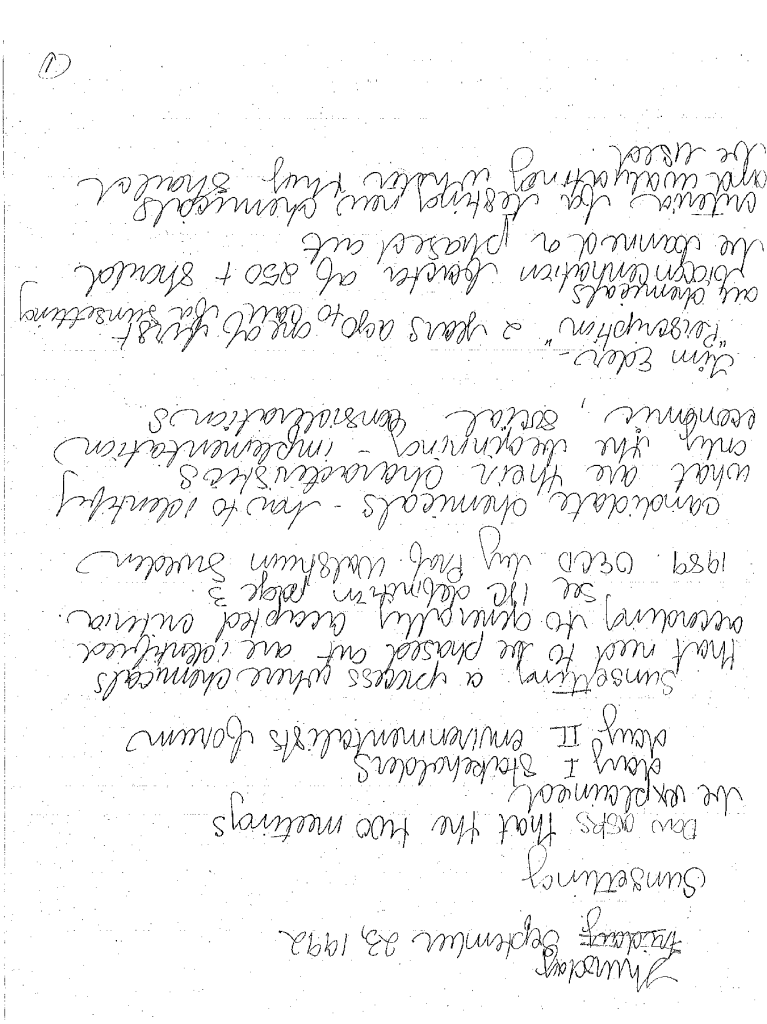 Thursday
Friday September 23, 1992
Sunsetting
Dow asks that the two meetings
be explained.
day I stakeholders
day II environmentalists forum
Sunsetting a process where chemicals
that need to be phased out are identified
according to generally accepted criteria.
see IJC definition page 3
1989 OECD by Prof. Wahlstrum Sweden
candidate chemicals - how to identify
what are their characteristics
only the beginning - implementation
economic, social considerations
Jim Eder -
"Perscription" 2 years ago to call for sunsetting
one of first
any chemicals
bioconcentration factor of 250 + should
be banned or phased out
criteria for testing new chemicals
and evaluating whether they should
be used.
1